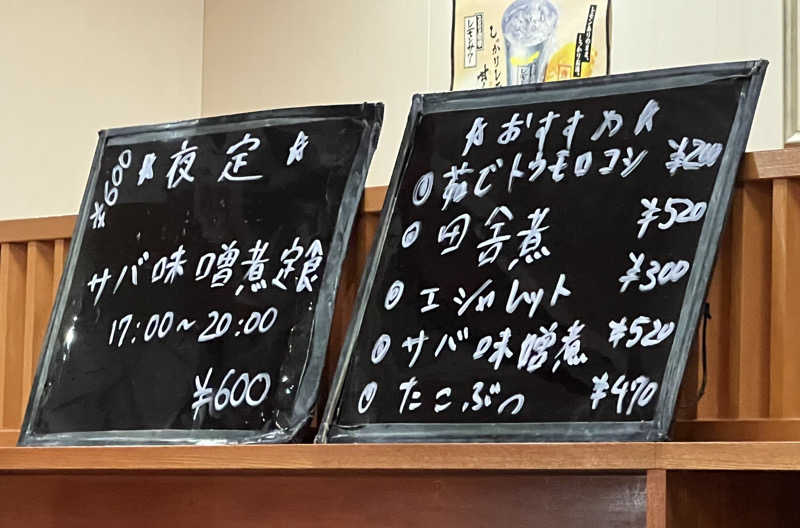 ¥600
☆夜定☆
サバ味噌煮定食
17:00～20:00
¥600
☆おすすめ☆
茹じトウモロコシ ¥200
田舎煮 ¥520
エシャレット ¥300
サバ味噌煮 ¥520
たこぶつ ¥470
レモンサワー